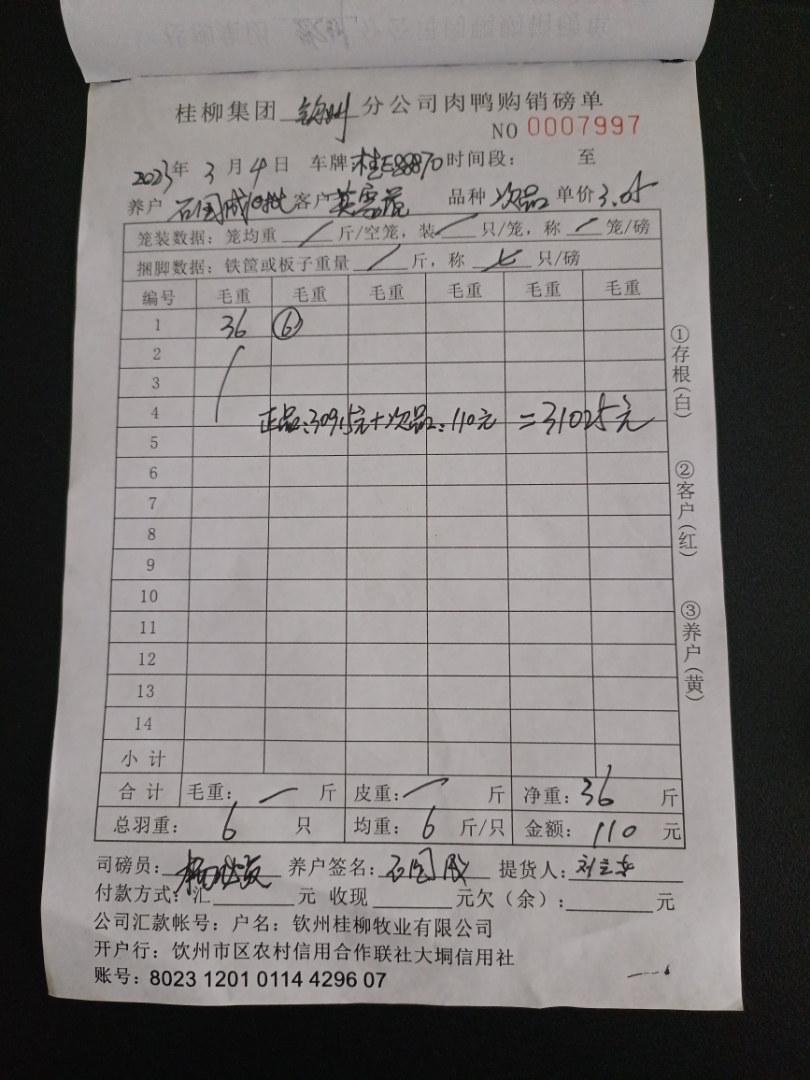 桂柳集团 钦州 分公司肉鸭购销磅单
NO 0007997
2023年 3 月 4 日 车牌：桂E88870 时间段： 至
养户 石国成 客户 品种 次品 单价 3.05
笼装数据：笼均重 / 斤/空笼，装 / 只/笼，称 / 笼/磅
捆脚数据：铁筐或板子重量 / 斤，称 只/磅
编号 毛重 毛重 毛重 毛重 毛重 毛重
1 36 ⑥
2
3
4
正品：30915元+次品：110元 =31025元
5
6
7
8
9
10
11
12
13
14
小 计
合 计 毛重： 斤 皮重： 斤 净重：36 斤
总羽重： 6 只 均重：6 斤/只 金额：110 元
司磅员： 养户签名：石国成 提货人：
付款方式：汇 元 收现 元欠（余）： 元
公司汇款帐号：户名：钦州桂柳牧业有限公司
开户行：钦州市区农村信用合作联社大垌信用社
账号：8023 1201 0114 4296 07
①存根（白）
②客户（红）
③养户（黄）